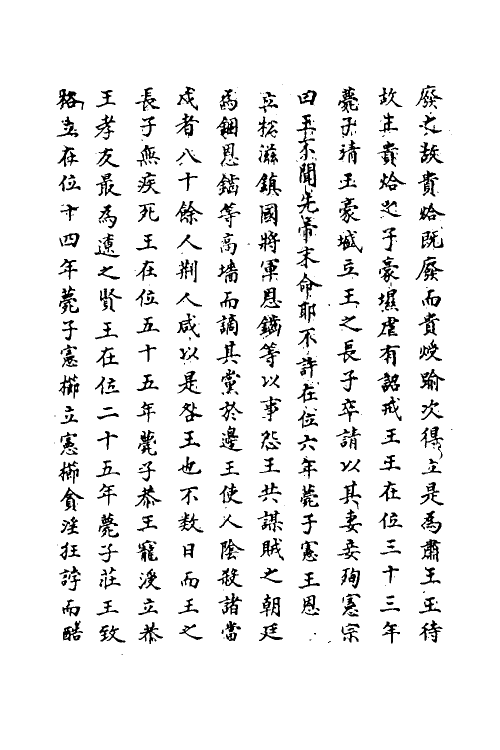 廢之故貴烚既廢而貴㷆踰次得立是為肅王王待
故王貴烚之子豪墭虐有詔戒王王在位三十三年
薨子靖王豪墭立王之長子卒請以其妻妾殉憲宗
曰王不聞先帝末命耶不許在位六年薨子憲王恩
立松滋鎮國將軍恩鑡等以事怨王共謀賊之朝廷
為錮恩鑡等高墻而謫其黨於邊王使人陰殺諸當
戍者八十餘人荆人咸以是咎王也不數日而王之
長子無疾死王在位五十五年薨子恭王寵涭立恭
王孝友最為遼之賢王在位二十五年薨子莊王致
格立在位十四年薨子憲㸅立憲㸅貪淫狂誖而酷